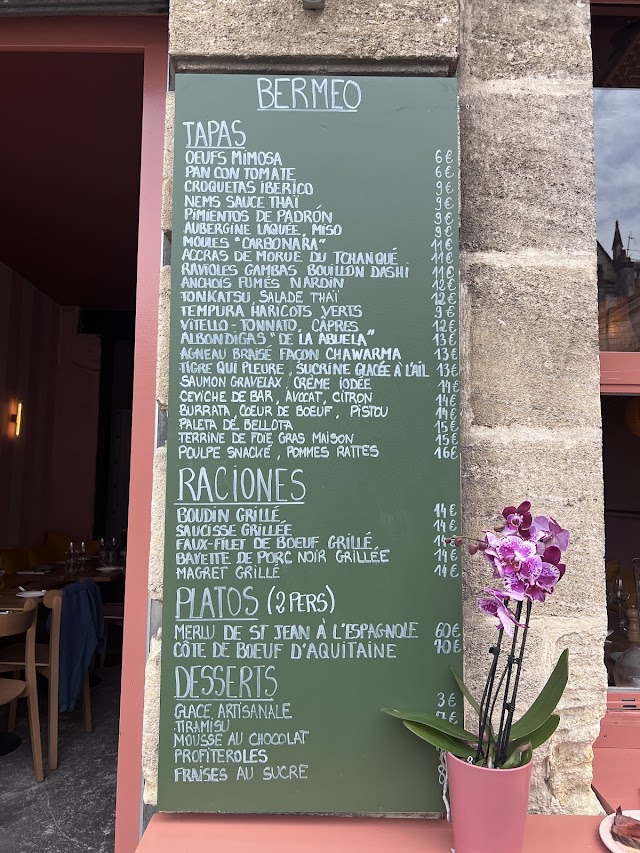 BERMEO
TAPAS
OEUFS MIMOSA 6€
PAN CON TOMATE 6€
CROQUETAS IBERICO 9€
NEMS SAUCE THAÏ 9€
PIMIENTOS DE PADRÓN 9€
AUBERGINE LAQUÉE, MISO 9€
MOULES "CARBONARA" 11€
ACCRAS DE MORUE DU TCHANQUÉ 11€
RAVIOLES GAMBAS BOUILLON DASHI 11€
ANCHOIS FUMÉS NARDIN 12€
TONKATSU, SALADE THAÏ 12€
TEMPURA HARICOTS VERTS 9€
VITELLO-TONNATO, CÂPRES 12€
ALBONDIGAS "DE LA ABUELA" 13€
AGNEAU BRAISÉ FAÇON CHAWARMA 13€
TIGRE QUI PLEURE, SUCRINE GLACÉE À L'AIL 13€
SAUMON GRAVELAX, CRÈME IODÉE 14€
CEVICHE DE BAR, AVOCAT, CITRON 14€
BURRATA, COEUR DE BOEUF, PISTOU 14€
PALETA DE BELLOTA 15€
TERRINE DE FOIE GRAS MAISON 15€
POULPE SNACKÉ, POMMES RATTES 16€
RACIONES
BOUDIN GRILLÉ 14€
SAUCISSE GRILLÉE 14€
FAUX-FILET DE BOEUF GRILLÉ 14€
BAVETTE DE PORC NOIR GRILLÉE 14€
MAGRET GRILLÉ 14€
PLATOS (2 PERS)
MERLU DE ST JEAN À L'ESPAGNOLE 60€
CÔTE DE BOEUF D'AQUITAINE 70€
DESSERTS
GLACE ARTISANALE 3€
TIRAMISU
MOUSSE AU CHOCOLAT
PROFITEROLES
FRAISES AU SUCRE